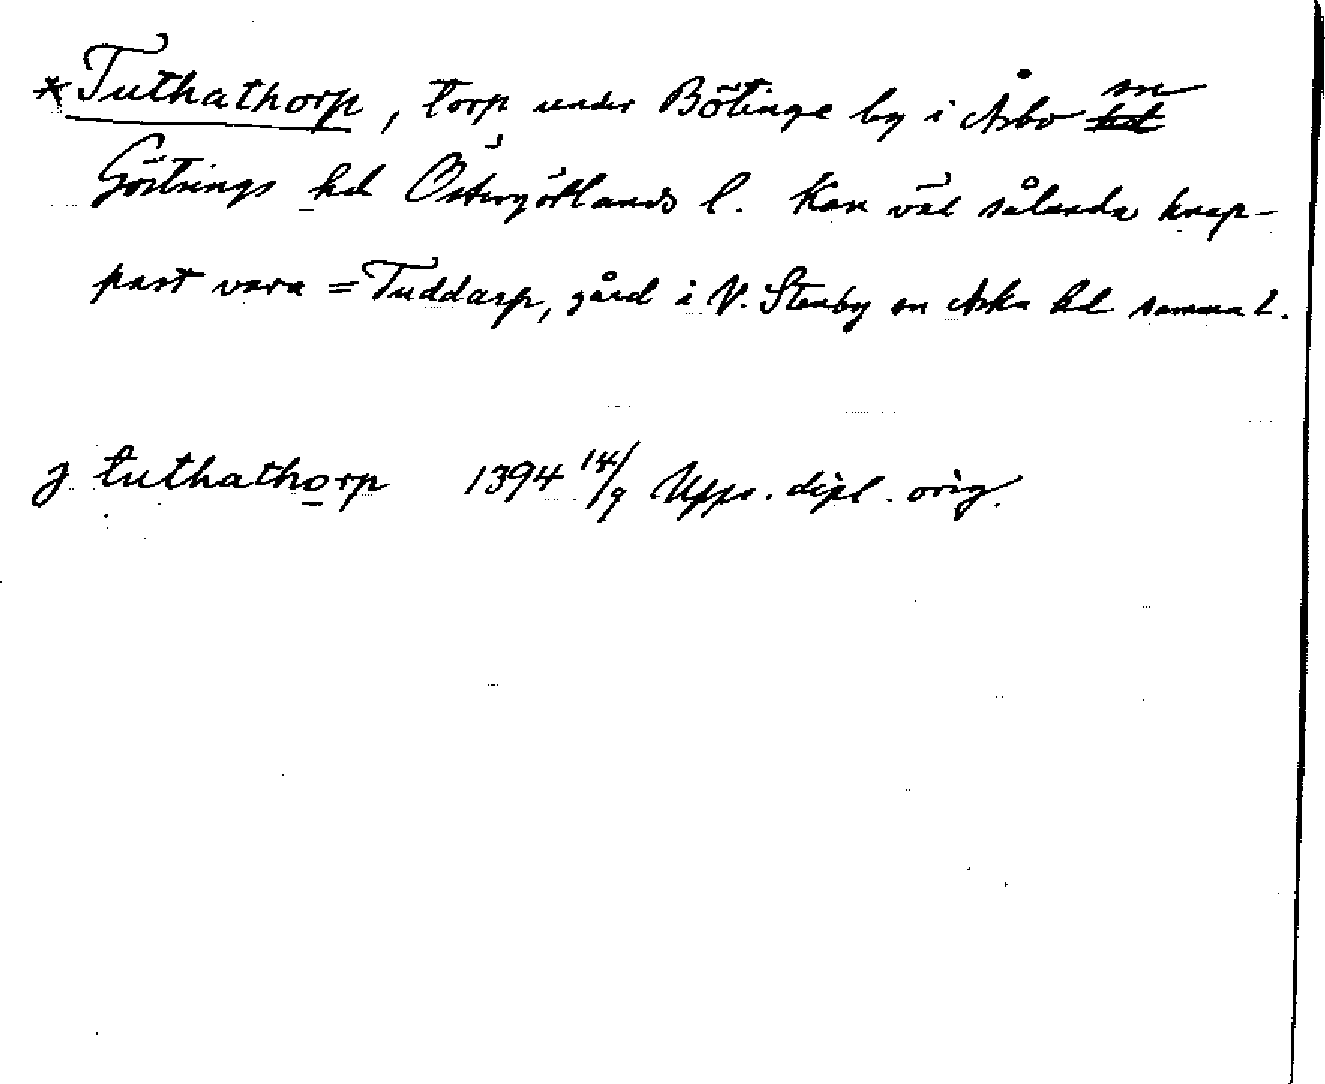 *Tuthathorp, torp under Bötinge by i Åsbo sn
Göstrings hd Östergötlands l. Kan väl sålunda knap-
past vara = Tuddarp, gård i V. Stenby sn Aska hd samma l.
j tuthathorp 1394 14/9 Upps. dipl. orig.